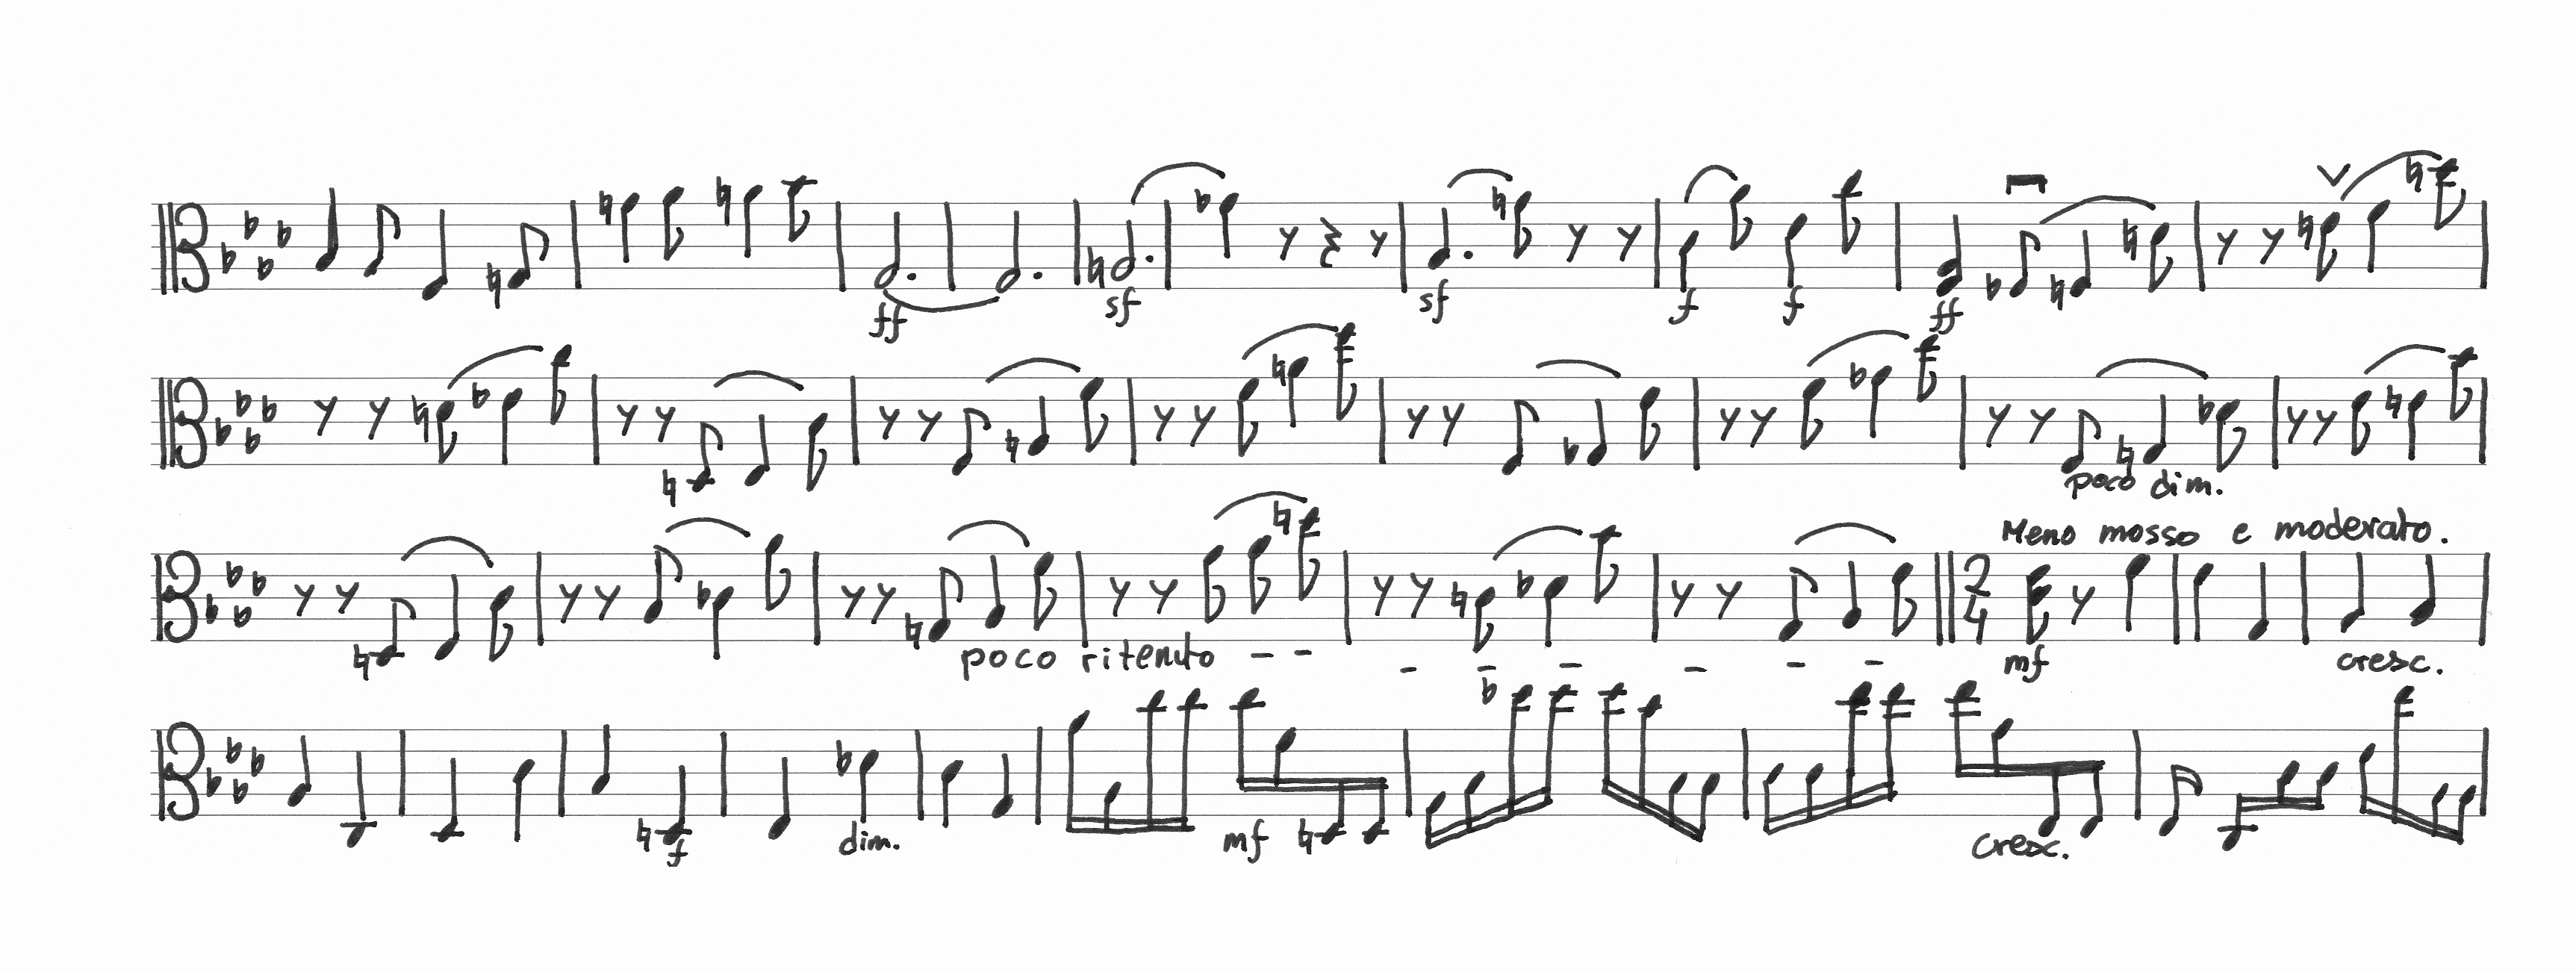 ff sf sf f f ff
poco dim.
Meno mosso e moderato.
2
4
poco ritenuto - - - - - - - - mf cresc.
f dim. mf cresc.